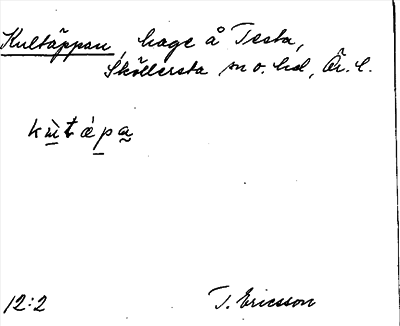 Kultäppan, hage å Testa,
Sköllersta sn o. hd, Ör. l.
kùtápa
12:2
T. Ericsson